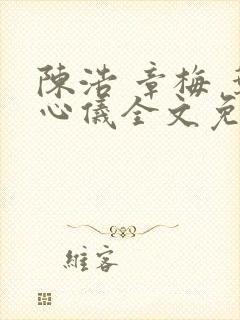 陳浩 章梅
心儀全文免
維客